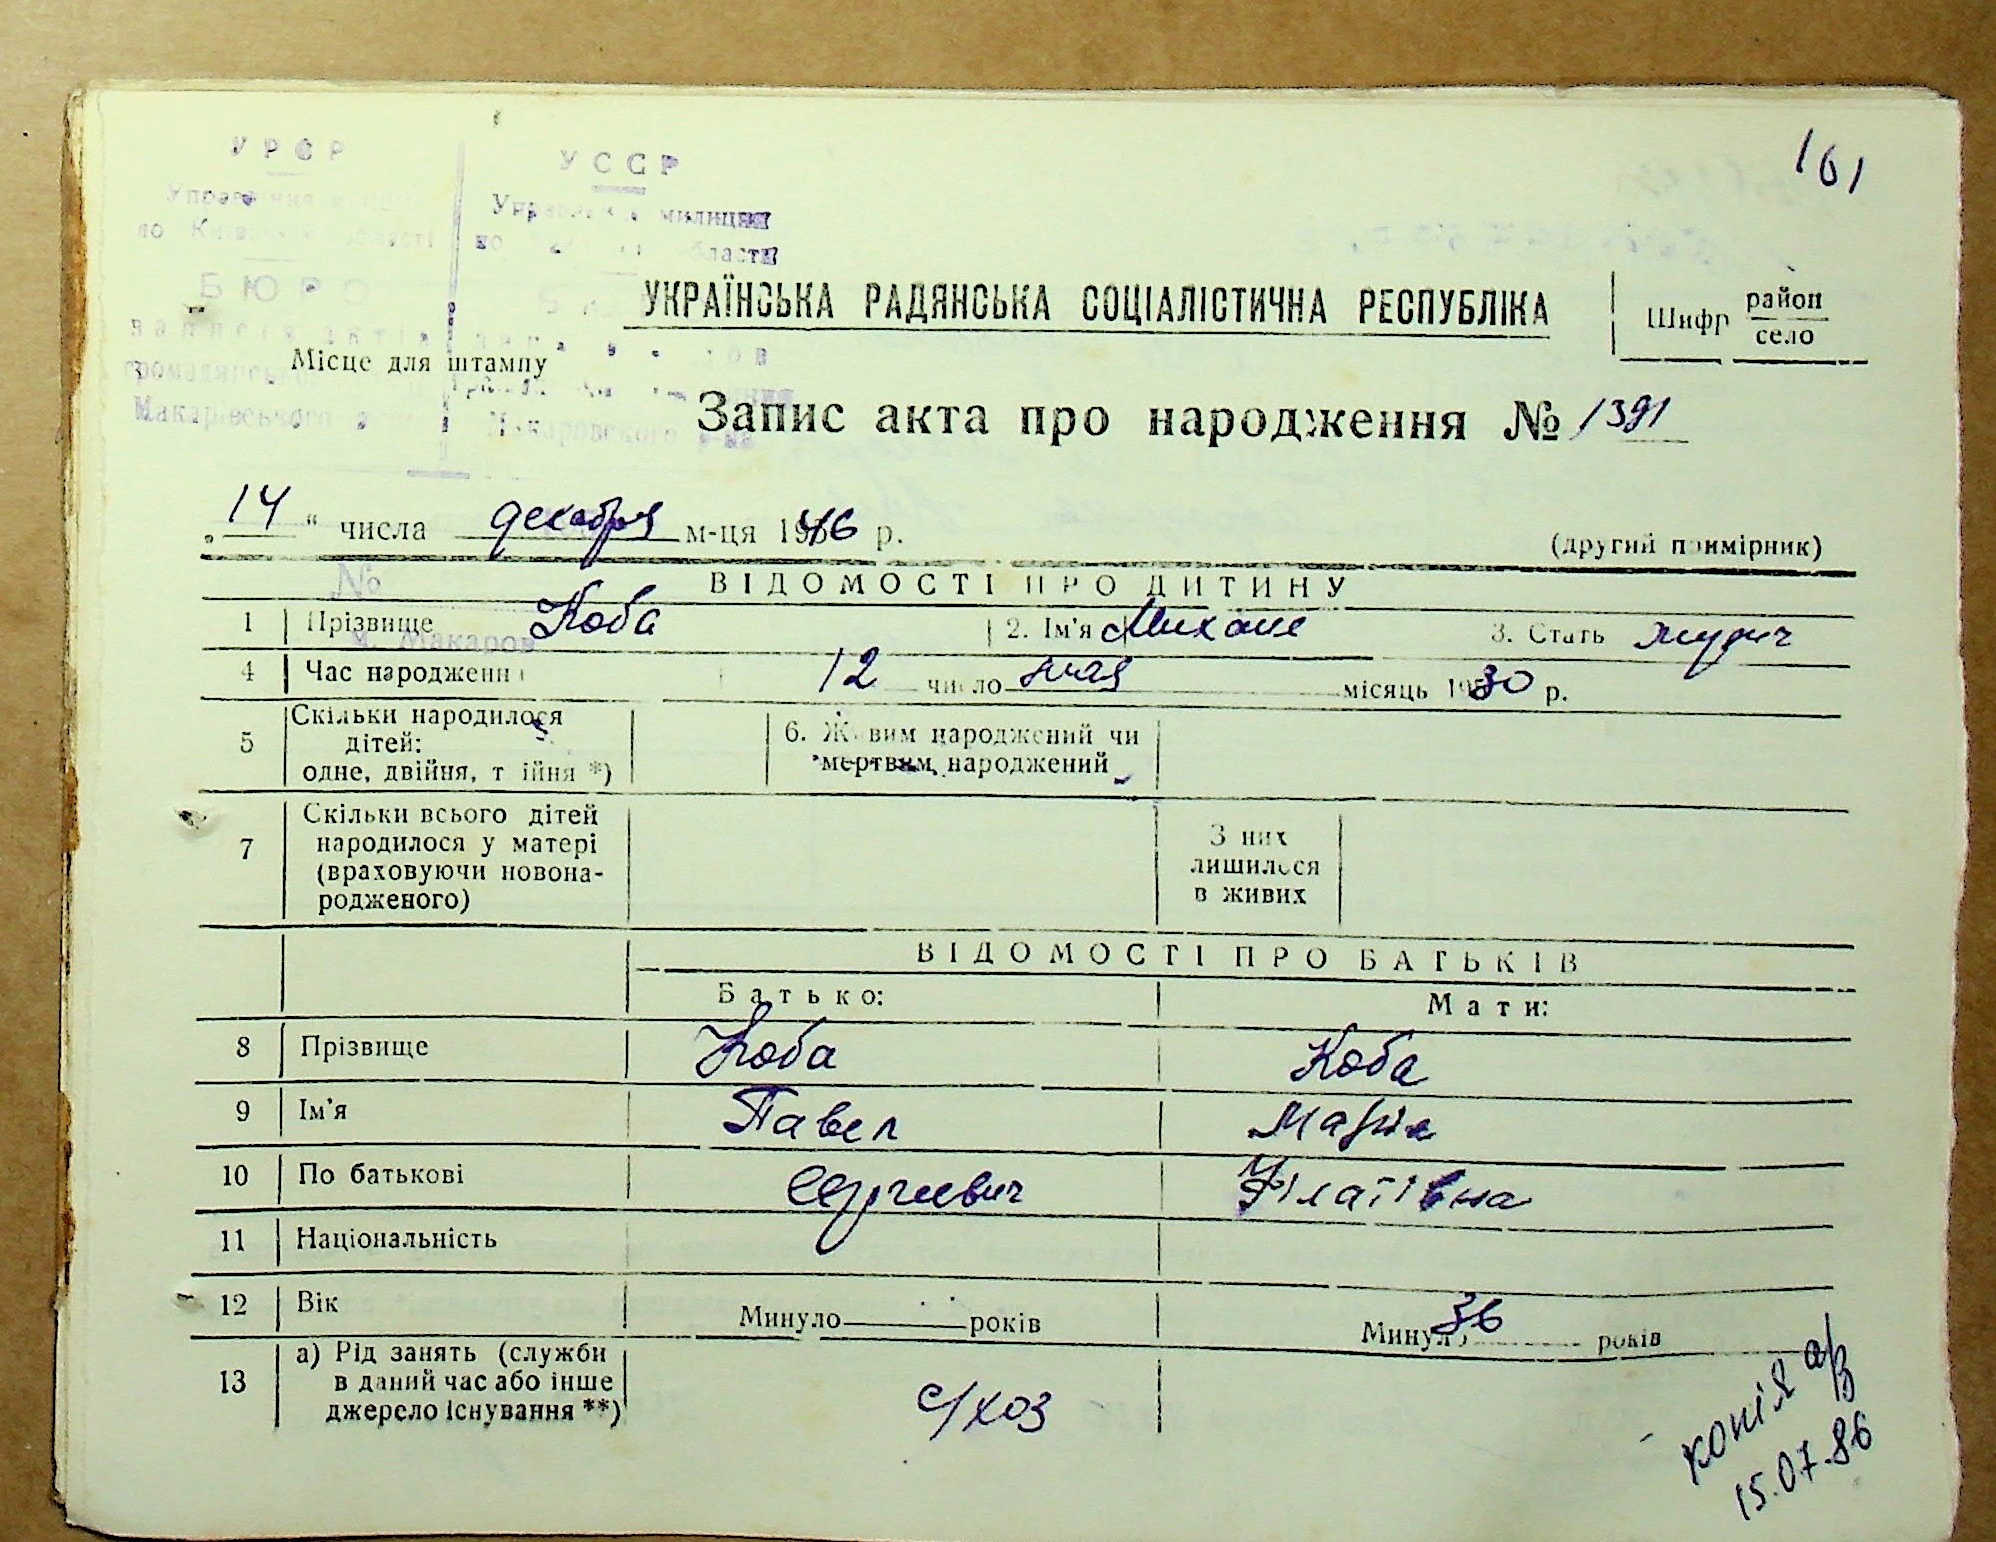 161
УРСР
УССР
милиции
по Київській області
по области
БЮРО
УКРАЇНСЬКА РАДЯНСЬКА СОЦІАЛІСТИЧНА РЕСПУБЛІКА
Шифр район
село
Місце для штампу
Макарівського
Макаровского р-на
Запис акта про народження № 1391
„ 14 “ числа декабря м-ця 1946 р.
(другий примірник)
№
ВІДОМОСТІ ПРО ДИТИНУ
1 Прізвище Коба 2. Ім'я Михаил 3. Стать мужич
м. Макаров
4 Час народження 12 число мая місяць 1930 р.
5 Скільки народилося
дітей:
одне, двійня, трійня *)
6. Живим народжений чи
мертвим народжений
7 Скільки всього дітей
народилося у матері
(враховуючи новона-
родженого)
З них
лишилося
в живих
ВІДОМОСТІ ПРО БАТЬКІВ
Батько: Мати:
8 Прізвище Коба Коба
9 Ім'я Павел Марія
10 По батькові Сергиевич Філатівна
11 Національність
12 Вік Минуло роківь Минуло 36 років
13 а) Рід занять (служби
в даний час або інше
джерело існування **)
с/хоз
копія а/з
15.07.86